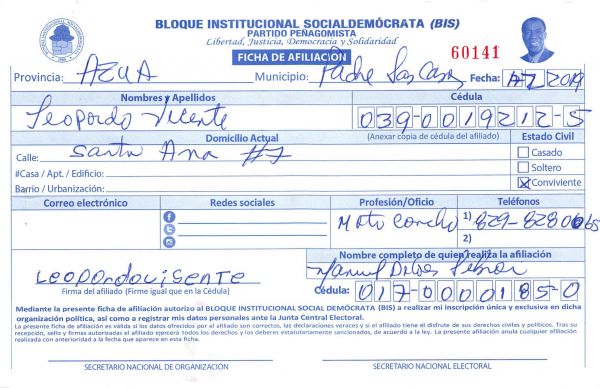 BLOQUE INSTITUCIONAL SOCIALDEMÓCRATA (BIS)
PARTIDO PEÑAGOMISTA
Libertad, Justicia, Democracia y Solidaridad
FICHA DE AFILIACIÓN
60141
Provincia: AZUA Municipio: Padre Las Casas Fecha: 2019
Nombres y Apellidos Cédula
Leopordo Vicente 039-0019212-5
Domicilio Actual (Anexar copia de cédula del afiliado) Estado Civil
Calle: Santa Ana #7 Casado
#Casa / Apt. / Edificio: Soltero
Barrio / Urbanización: Conviviente
Correo electrónico Redes sociales Profesión/Oficio Teléfonos
Moto Concho 1) 829-828
2)
Nombre completo de quien realiza la afiliación
Leopordovisente Manuel
Firma del afiliado (Firme igual que en la Cédula) Cédula: 017-0000185-0
Mediante la presente ficha de afiliación autorizo al BLOQUE INSTITUCIONAL SOCIAL DEMÓCRATA (BIS) a realizar mi inscripción única y exclusiva en dicha
organización política, así como a registrar mis datos personales ante la Junta Central Electoral.
La presente ficha de afiliación es válida si los datos ofrecidos por el afiliado son correctos, las declaraciones veraces y si el afiliado tiene el disfrute de sus derechos civiles y políticos. Tras su
recepción, sello y firmas autorizadas el afiliado ejercerá todos los derechos y los deberes estatutariamente sancionados, de acuerdo a la ley. La presente afiliación anula cualquier afiliación
realizada con anterioridad a la fecha que aparece en esta ficha.
SECRETARIO NACIONAL DE ORGANIZACIÓN SECRETARIO NACIONAL ELECTORAL